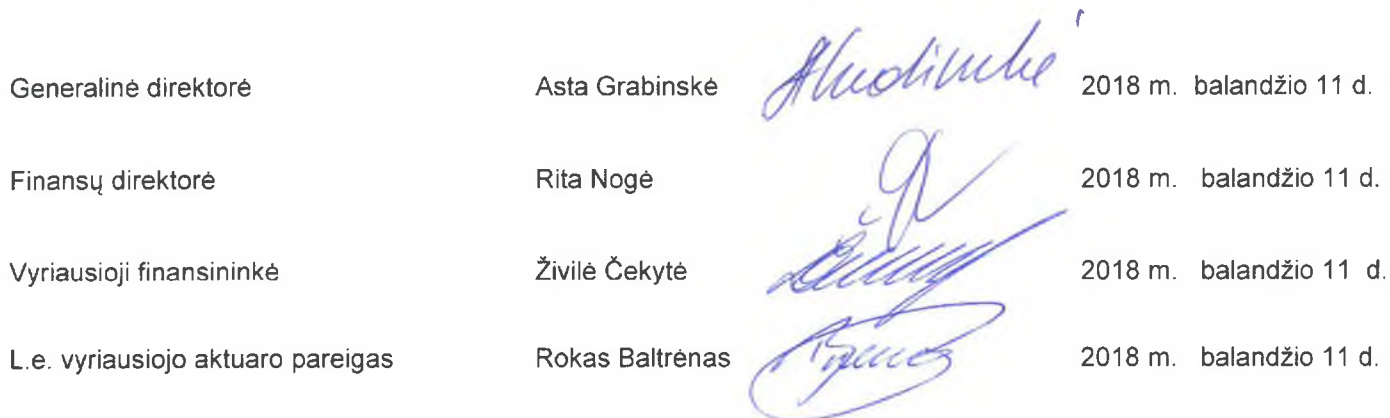 Generalinė direktorė Asta Grabinskė 2018 m. balandžio 11 d.
Finansų direktorė Rita Nogė 2018 m. balandžio 11 d.
Vyriausioji finansininkė Živilė Čekytė 2018 m. balandžio 11 d.
L.e. vyriausiojo aktuaro pareigas Rokas Baltrėnas 2018 m. balandžio 11 d.